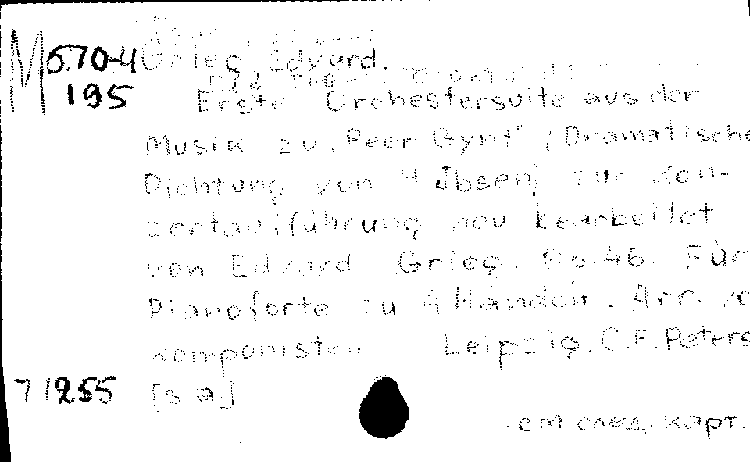 M 570-4 Grieg, Edvard.
195 Erste Orchestersuite aus der
Musik zu "Peer Gynt" (Dramatische
Dichtung von H. Jbsen) zur Kon-
zertaufführung neu bearbeitet
von Edvard Grieg. Op. 46. Für
Pianoforte zu 4 Händen. Arr. v.
Komponisten Leipzig, C.F. Peters
71255 [s.a.]
см след. карт.